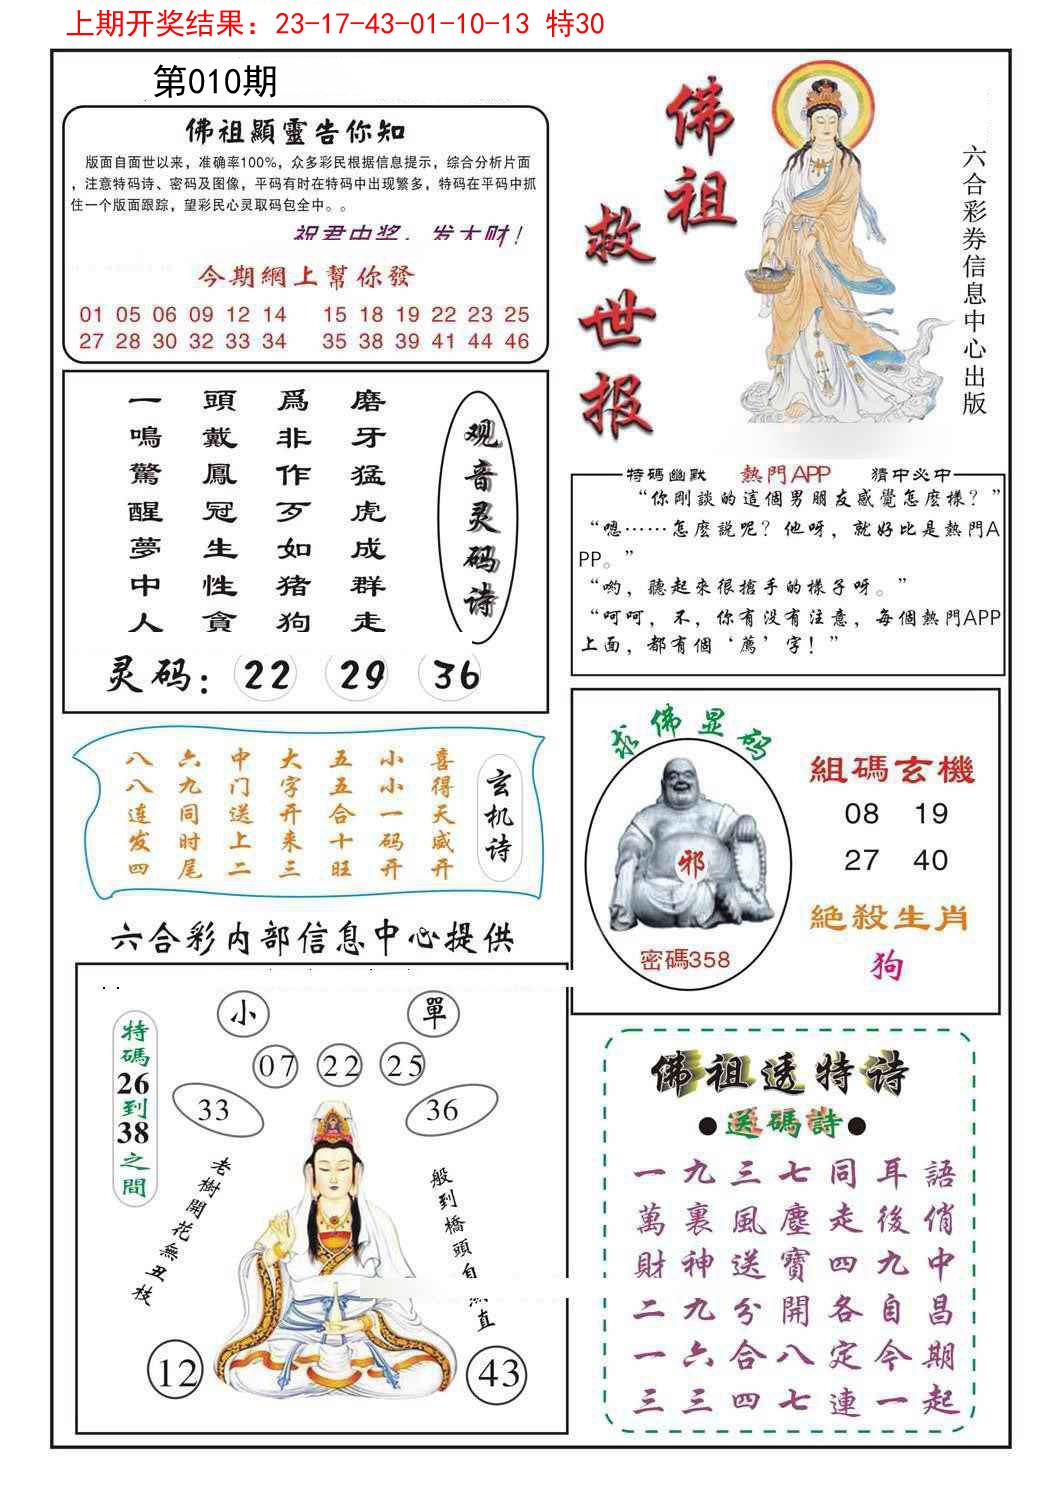 上期开奖结果：23-17-43-01-10-13 特30
第010期
佛祖顯靈告你知
版面自面世以来，准确率100%，众多彩民根据信息提示，综合分析片面
，注意特码诗、密码及图像，平码有时在特码中出现繁多，特码在平码中抓
住一个版面跟踪，望彩民心灵取码包全中。。
祝君中奖，发大财！
今期網上幫你發
01 05 06 09 12 14 15 18 19 22 23 25
27 28 30 32 33 34 35 38 39 41 44 46
佛祖
救世报
六合彩券信息中心出版
磨牙猛虎成群走
爲非作歹如猪狗
頭戴鳳冠生性貪
一鳴驚醒夢中人
观音灵码诗
灵码：22 29 36
特碼幽默 熱門APP 猜中必中
“你剛談的這個男朋友感覺怎麼樣？”
“嗯……怎麼説呢？他呀，就好比是熱門A
PP。”
“喲，聽起來很搶手的樣子呀。”
“呵呵，不，你有没有注意，每個熱門APP
上面，都有個‘薦’字！”
玄机诗
喜得天威开
小小一码开
五五合十旺
大字开来三
中门送上二
六九同时尾
八八连发四
求佛显码
邪
密碼358
組碼玄機
08 19
27 40
絕殺生肖
狗
六合彩内部信息中心提供
小 單
07 22 25
33 36
特碼26到38之間
老樹開花無丑枝
般到橋頭自 直
12 43
佛祖透特诗
●送碼詩●
一九三七同耳語
萬裏風塵走後俏
財神送寶四九中
二九分開各自昌
一六合八定今期
三三四七連一起